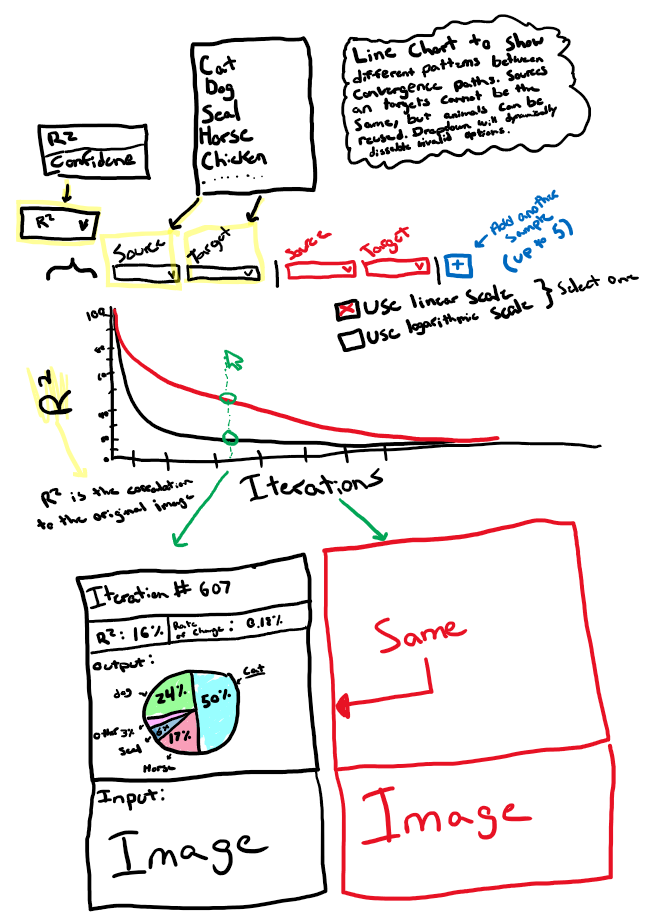 Line Chart to show
different patterns between
Convergence paths. Sources
an targets cannot be the
Same, but animals can be
reused. Dropdown will dynamically
dissable invalid options.
Cat
Dog
Seal
Horse
Chicken
.......
R²
Confidene
R²
Source
Target
Source
Target
+
Add another
Sample
(up to 5)
Use linear scale
Use logarithmic scale
} Select one
100
80
60
40
20
0
R²
Iterations
R² is the correlation
to the original image
Iteration # 607
R²: 16%
Rate
of Change: 0.18%
Output:
Cat
dog
24%
50%
Other 3%
Seal
6%
17%
Horse
Input:
Image
Same
Image